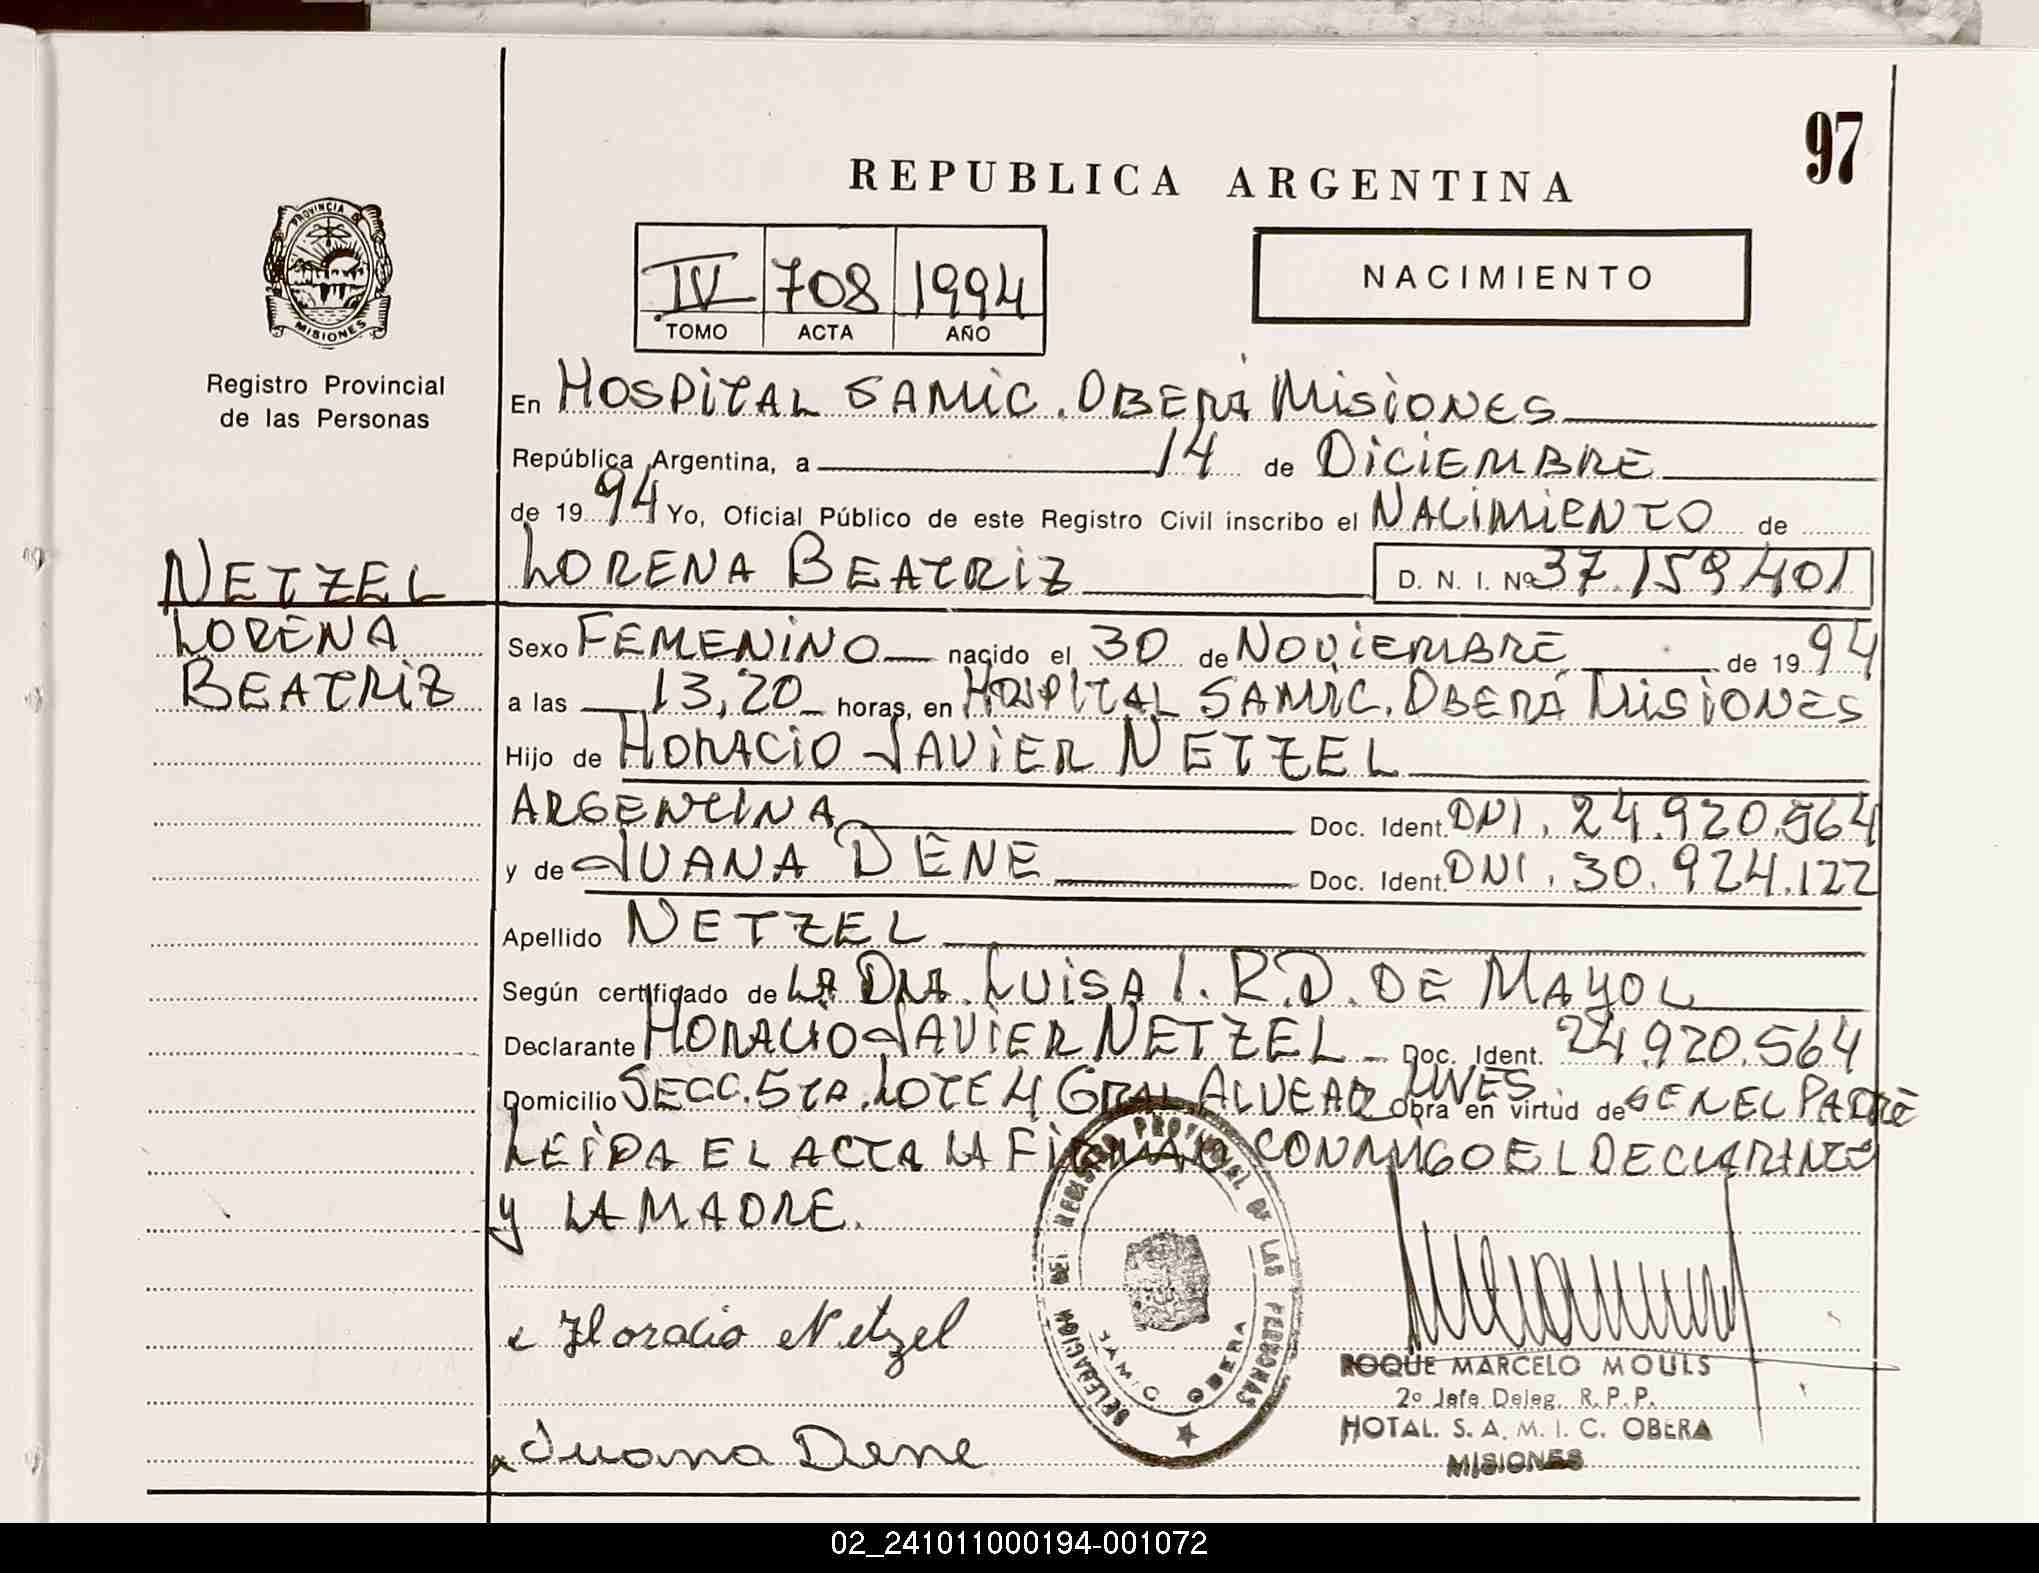 97
REPUBLICA ARGENTINA
PROVINCIA DE
MISIONES
IV 708 1994
TOMO ACTA AÑO
NACIMIENTO
Registro Provincial
de las Personas
En HOSPITAL SAMIC. OBERÁ MISIONES
República Argentina, a 14 de DICIEMBRE
de 1994 Yo, Oficial Público de este Registro Civil inscribo el NACIMIENTO de
LORENA BEATRIZ D. N. I. Nº 37.159.401
NETZEL
LORENA
BEATRIZ
Sexo FEMENINO nacido el 30 de NOVIEMBRE de 1994
a las 13,20 horas, en HOSPITAL SAMIC. OBERÁ MISIONES
Hijo de HORACIO JAVIER NETZEL
ARGENTINA Doc. Ident. DNI. 24.920.564
y de JUANA DENE Doc. Ident. DNI. 30.924.122
Apellido NETZEL
Según certificado de LA DRA. LUISA I. R.D. DE MAYOL
Declarante HORACIO JAVIER NETZEL Doc. Ident. 24.920.564
Domicilio SECC. 5TA. LOTE 4 GRAL ALVEAR MNES. Obra en virtud de SER EL PADRE
LEIDA EL ACTA LA FIRMAN CONMIGO EL DECLARANTE
y LA MADRE.
Horacio Netzel
Juana Dene
DELEGACION DEL REGISTRO PROVINCIAL DE LAS PERSONAS
SAMIC OBERA
ROQUE MARCELO MOULS
2º Jefe Deleg. R. P. P.
HOTAL. S. A. M. I. C. OBERA
MISIONES
02_241011000194-001072